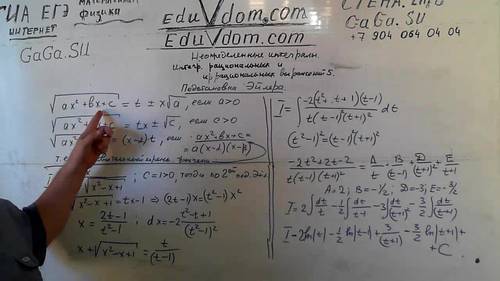 ГИА ЕГЭ
ИНТЕРНЕТ
физика
GaGa.SU
EduVdom.com
EduVdom.com
GaGa.SU
+7 904 064 04 04
Неопределенные интегралы.
интегр. рациональных и
иррациональных выражений 5.
Подстановка Эйлера.
√(ax²+bx+c) = t ± x√a, если a>0
= tx ± √c, если c>0
√(x²-x+1) ; c=1>0, тогда по 2
√(x²-x+1) = tx-1 ⇒ (2t-1)x = (t²-1)x²
x = (2t-1)/(t²-1) ; dx = -2 (t²-t+1)/(t²-1)²
x+√(x²-x+1) = t/(t-1)
I = ∫ -2(t²-t+1)(t-1)/(t(t-1)²(t+1)²) dt
(t²-1)² = (t-1)²(t+1)²
(-2t²+2t-2)/(t(t-1)(t+1)²) = A/t + B/(t-1) + D/(t+1)² + E/(t+1)
A=2; B=-1/2; D=-3; E=-3/2
I = 2∫dt/t - 1/2 ∫dt/(t-1) - 3∫dt/(t+1)² - 3/2 ∫dt/(t+1)
I = 2ln|t| - 1/2 ln|t-1| + 3/(t+1) - 3/2 ln|t+1| +
+ C